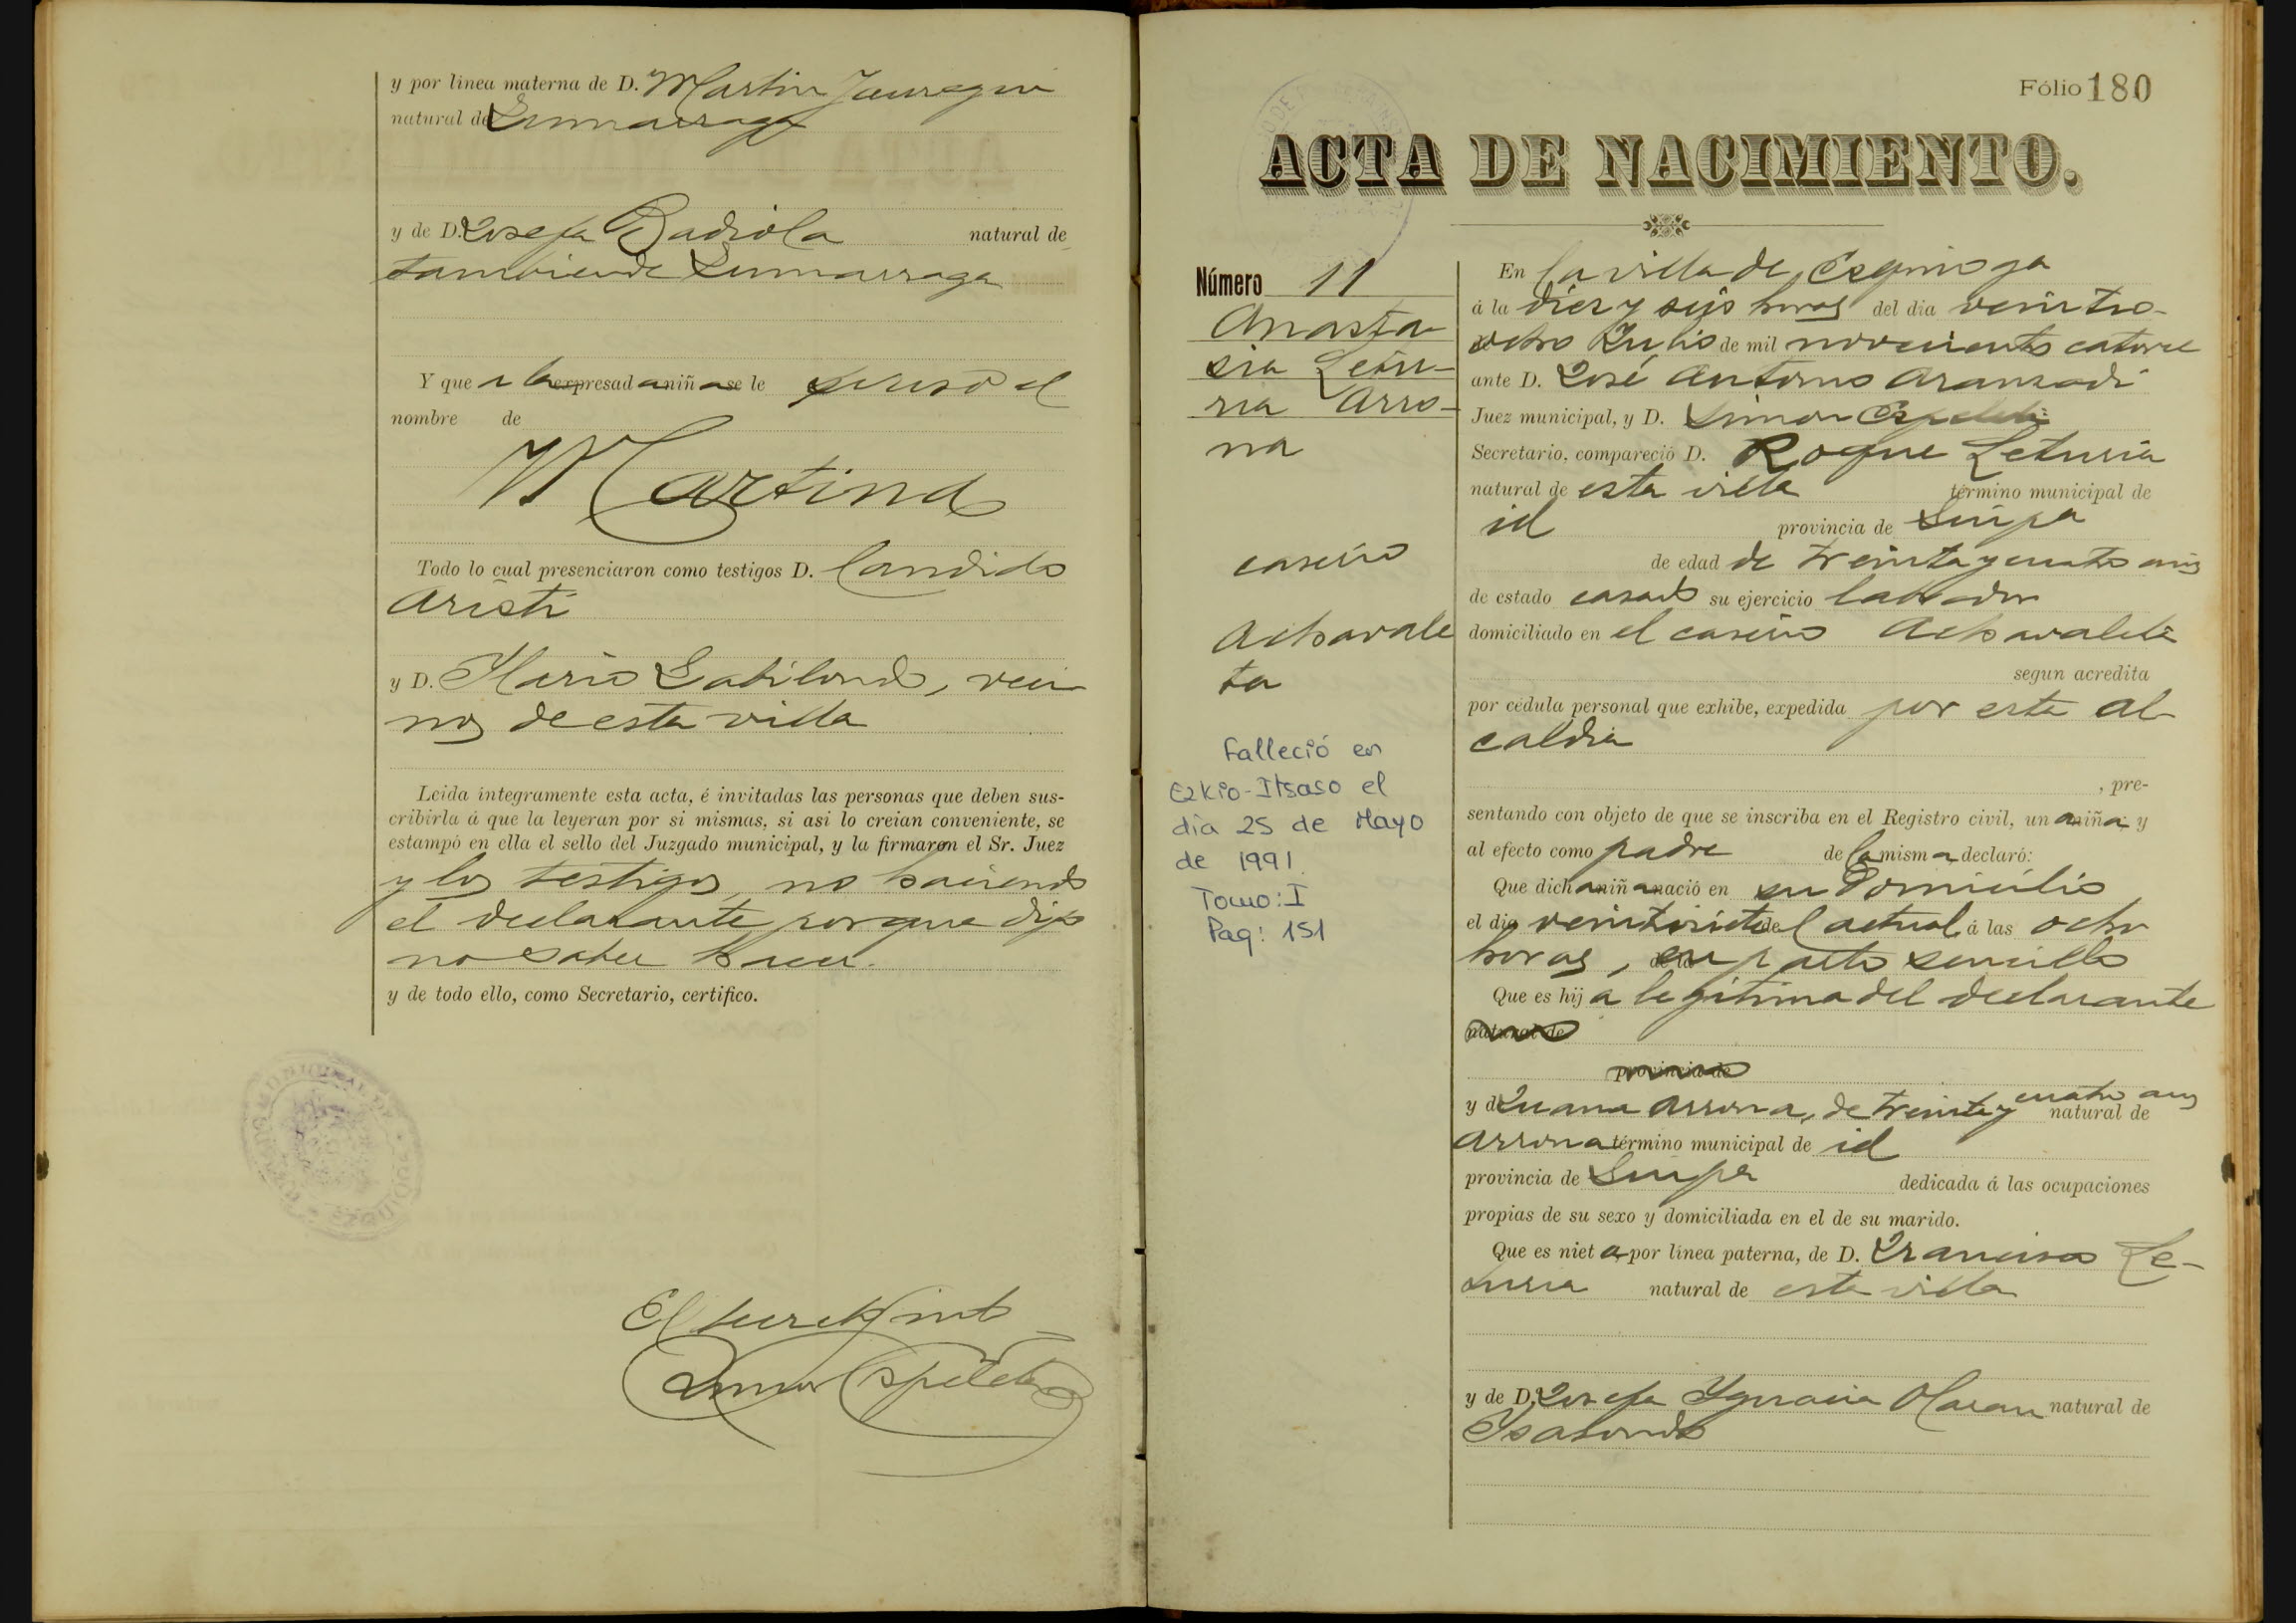 y por linea materna de D. Martin Jauregui
natural de Zumarraga
y de D. Josefa Badiola natural de
tambien de Zumarraga
Y que a la expresad a niñ a se le puso el
nombre de
Martina
Todo lo cual presenciaron como testigos D. Candido
Aristi
y D. Ylario Zabilondo, veci
nos de esta villa
Leida íntegramente esta acta, é invitadas las personas que deben sus-
cribirla á que la leyeran por si mismas, si asi lo creian conveniente, se
estampó en ella el sello del Juzgado municipal, y la firmaron el Sr. Juez
y los testigos, no haciendo
el declarante porque dijo
no saber hacer.
y de todo ello, como Secretario, certifico.
El secret
Simon Ezpeleta
Fólio 180
ACTA DE NACIMIENTO.
Número 11
Anasta
sia Letu-
ria Arro-
na
caserio
Acharale
ta
Falleció en
Ezkio-Itsaso el
día 25 de Mayo
de 1991.
Tomo: I
Pag: 151
En la villa de Ezquioga
á la diez y seis horas del dia veintio-
ocho Julio de mil novecientos catorce
ante D. José Antonio Aranzadi
Juez municipal, y D. Simon Ezpeleta
Secretario, compareció D. Roque Leturia
natural de esta villa término municipal de
id provincia de Guipa
de edad de treinta y cuatro años
de estado casado su ejercicio labrador
domiciliado en el caserio Acharaleta
segun acredita
por cédula personal que exhibe, expedida por esta al
caldia
, pre-
sentando con objeto de que se inscriba en el Registro civil, un a niñ a y
al efecto como padre de la mism a declaró:
Que dich a niñ a nació en su Domicilio
el dia veintisiete del actual á las ocho
horas, de la en parto sencillo
Que es hij a legitima del declarante
natural de
provincia de
y de Juana Arrona, de treinta y cuatro años natural de
Arrona término municipal de id
provincia de Guipa dedicada á las ocupaciones
propias de su sexo y domiciliada en el de su marido.
Que es niet a por linea paterna, de D. Francisco Le-
turia natural de esta villa
y de D. Josefa Ygnacia Olaran natural de
Ysasondo